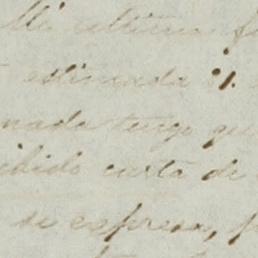 Mi ultima
estimada %.
nada tengo que
cibido carta de
se expresa, p